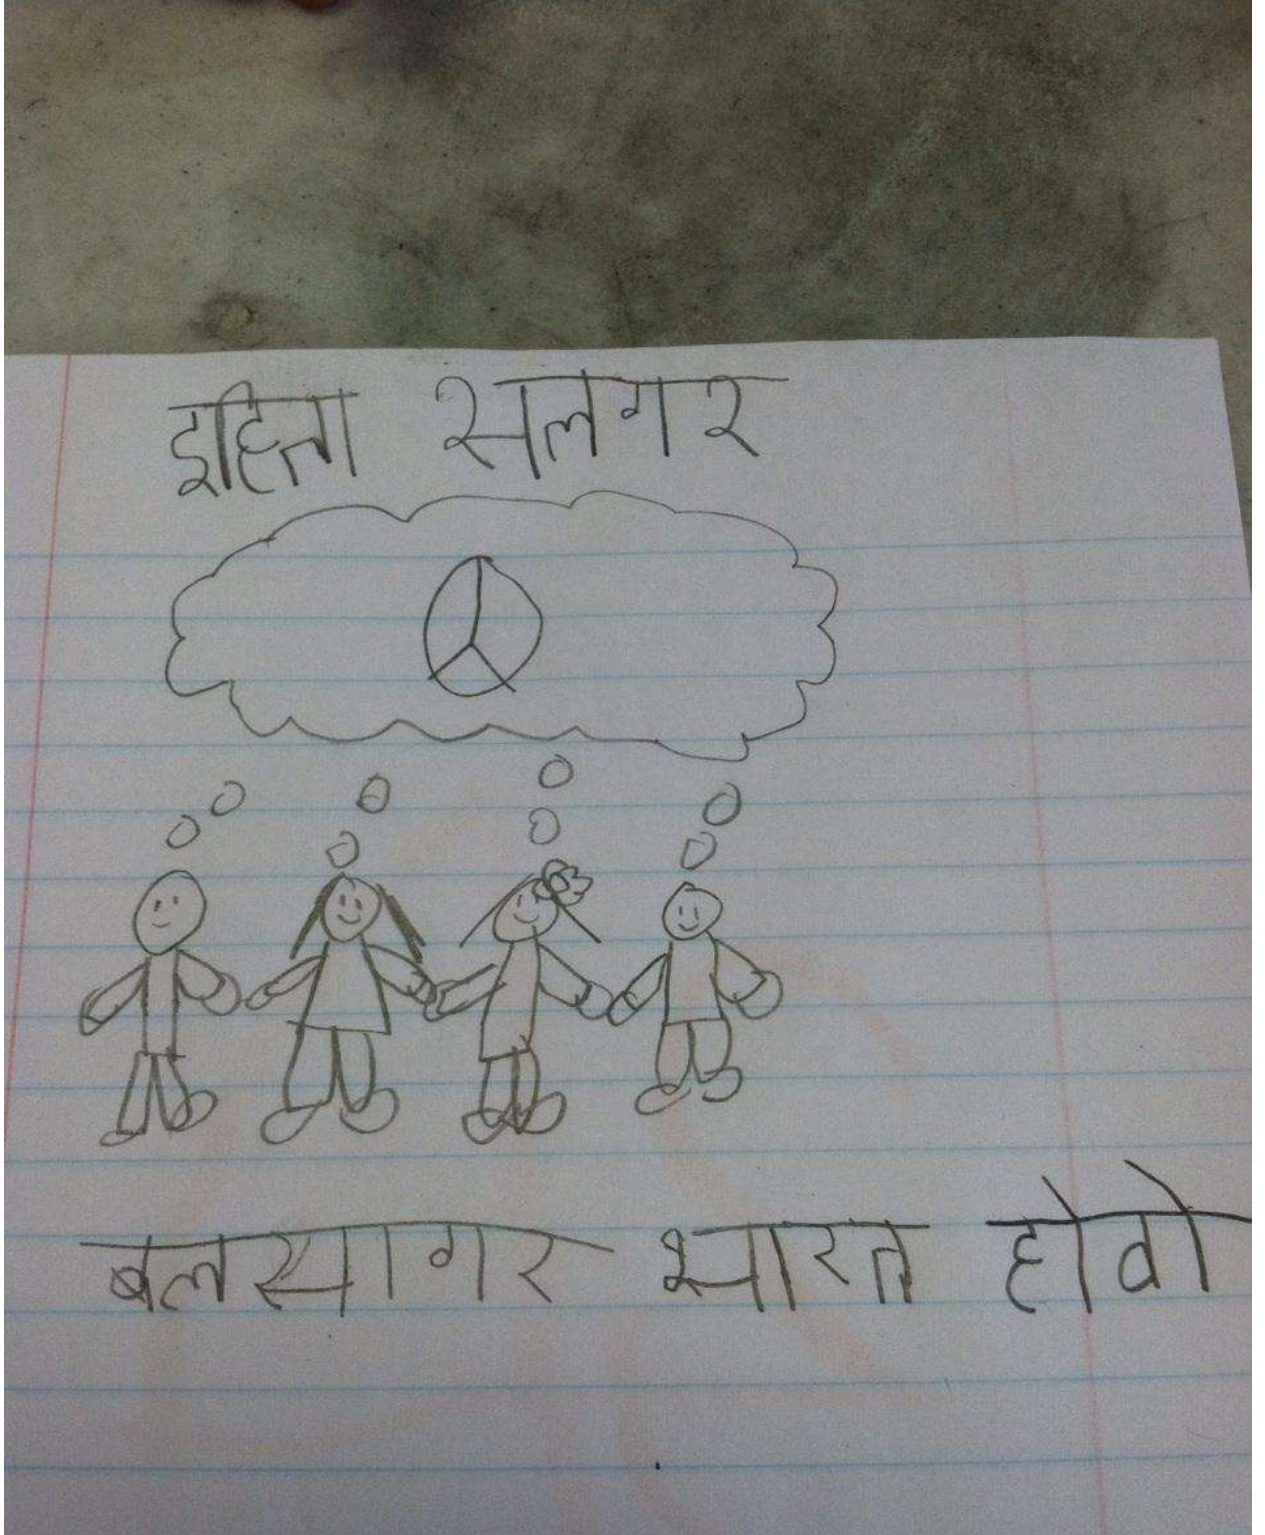 इहिता सलगर
बलसागर भारत होवो